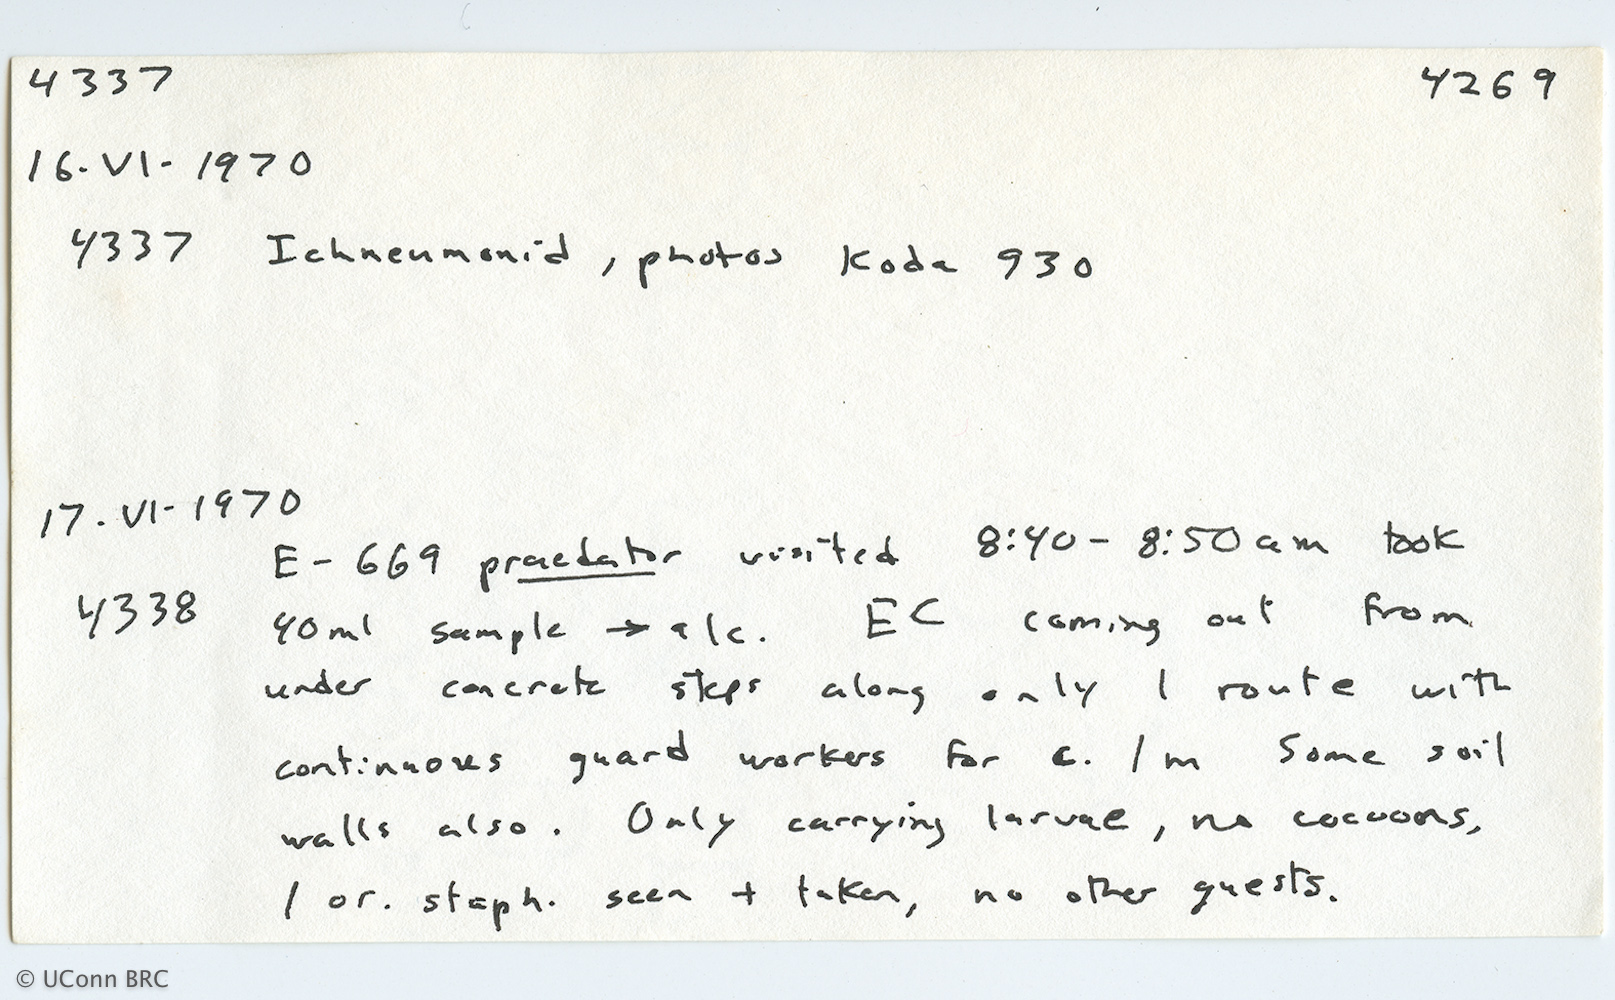 4337 4269
16-VI-1970
4337 Ichneumonid, photos Koda 930
17-VI-1970
E-669 praedator visited 8:40-8:50am took
4338 40ml sample → alc. EC coming out from
under concrete steps along only 1 route with
continuous guard workers for c. 1m Some soil
walls also. Only carrying larvae, no cocoons,
1 or. staph. seen + taken, no other guests.
© UConn BRC